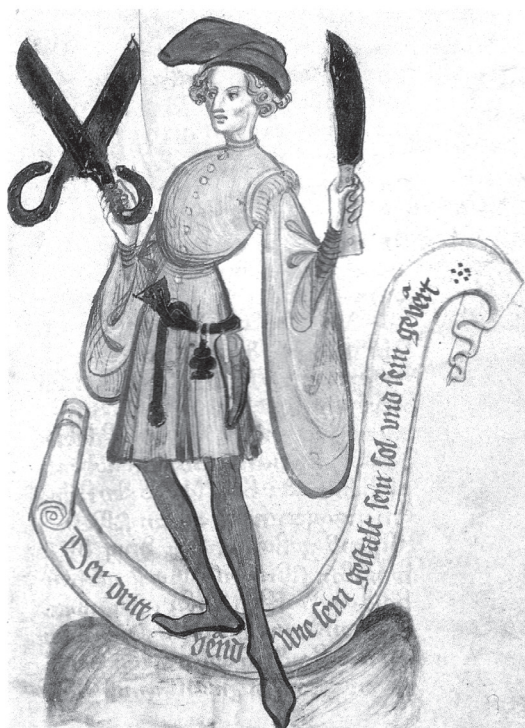 Der dritt vend Wie sein gestalt sein sol vnd sein gevert